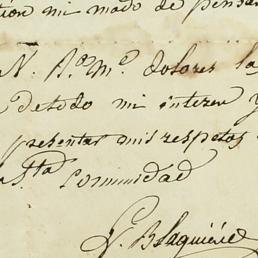 mi modo de pensar
N. R.ª M.e dolores la
de todo mi interes y
presentar mis respetos
Sta Comunidad
L. Blaquiére